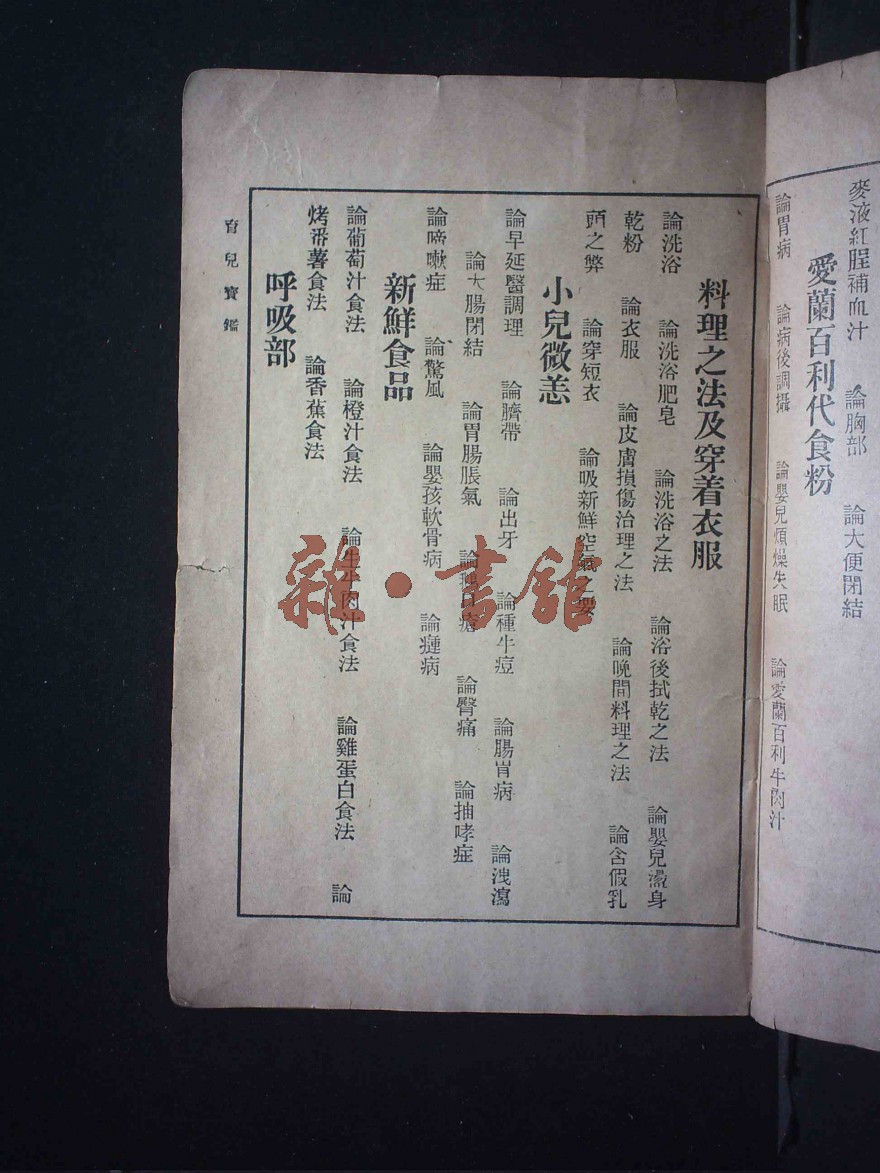 麥液紅腥補血汁 論胸部 論大便閉結
愛蘭百利代食粉
論胃病 論病後調攝 論嬰兒煩燥失眠 論愛蘭百利牛肉汁
料理之法及穿着衣服
論洗浴 論洗浴肥皂 論洗浴之法 論浴後拭乾之法 論嬰兒澂身
乾粉 論衣服 論皮膚損傷治理之法 論晚間料理之法 論含假乳
頭之弊 論穿短衣 論吸新鮮空氣之要
小兒微恙
論早延醫調理 論臍帶 論出牙 論種牛痘 論腸胃病 論洩瀉
論大腸閉結 論胃腸脹氣 論鵝口瘡 論臀痛 論抽哮症
論咳嗽症 論驚風 論嬰孩軟骨病 論瘇病
新鮮食品
論葡萄汁食法 論橙汁食法 論生牛肉汁食法 論雞蛋白食法 論
烤番薯食法 論香蕉食法
呼吸部
育兒寶鑑
雜·書館